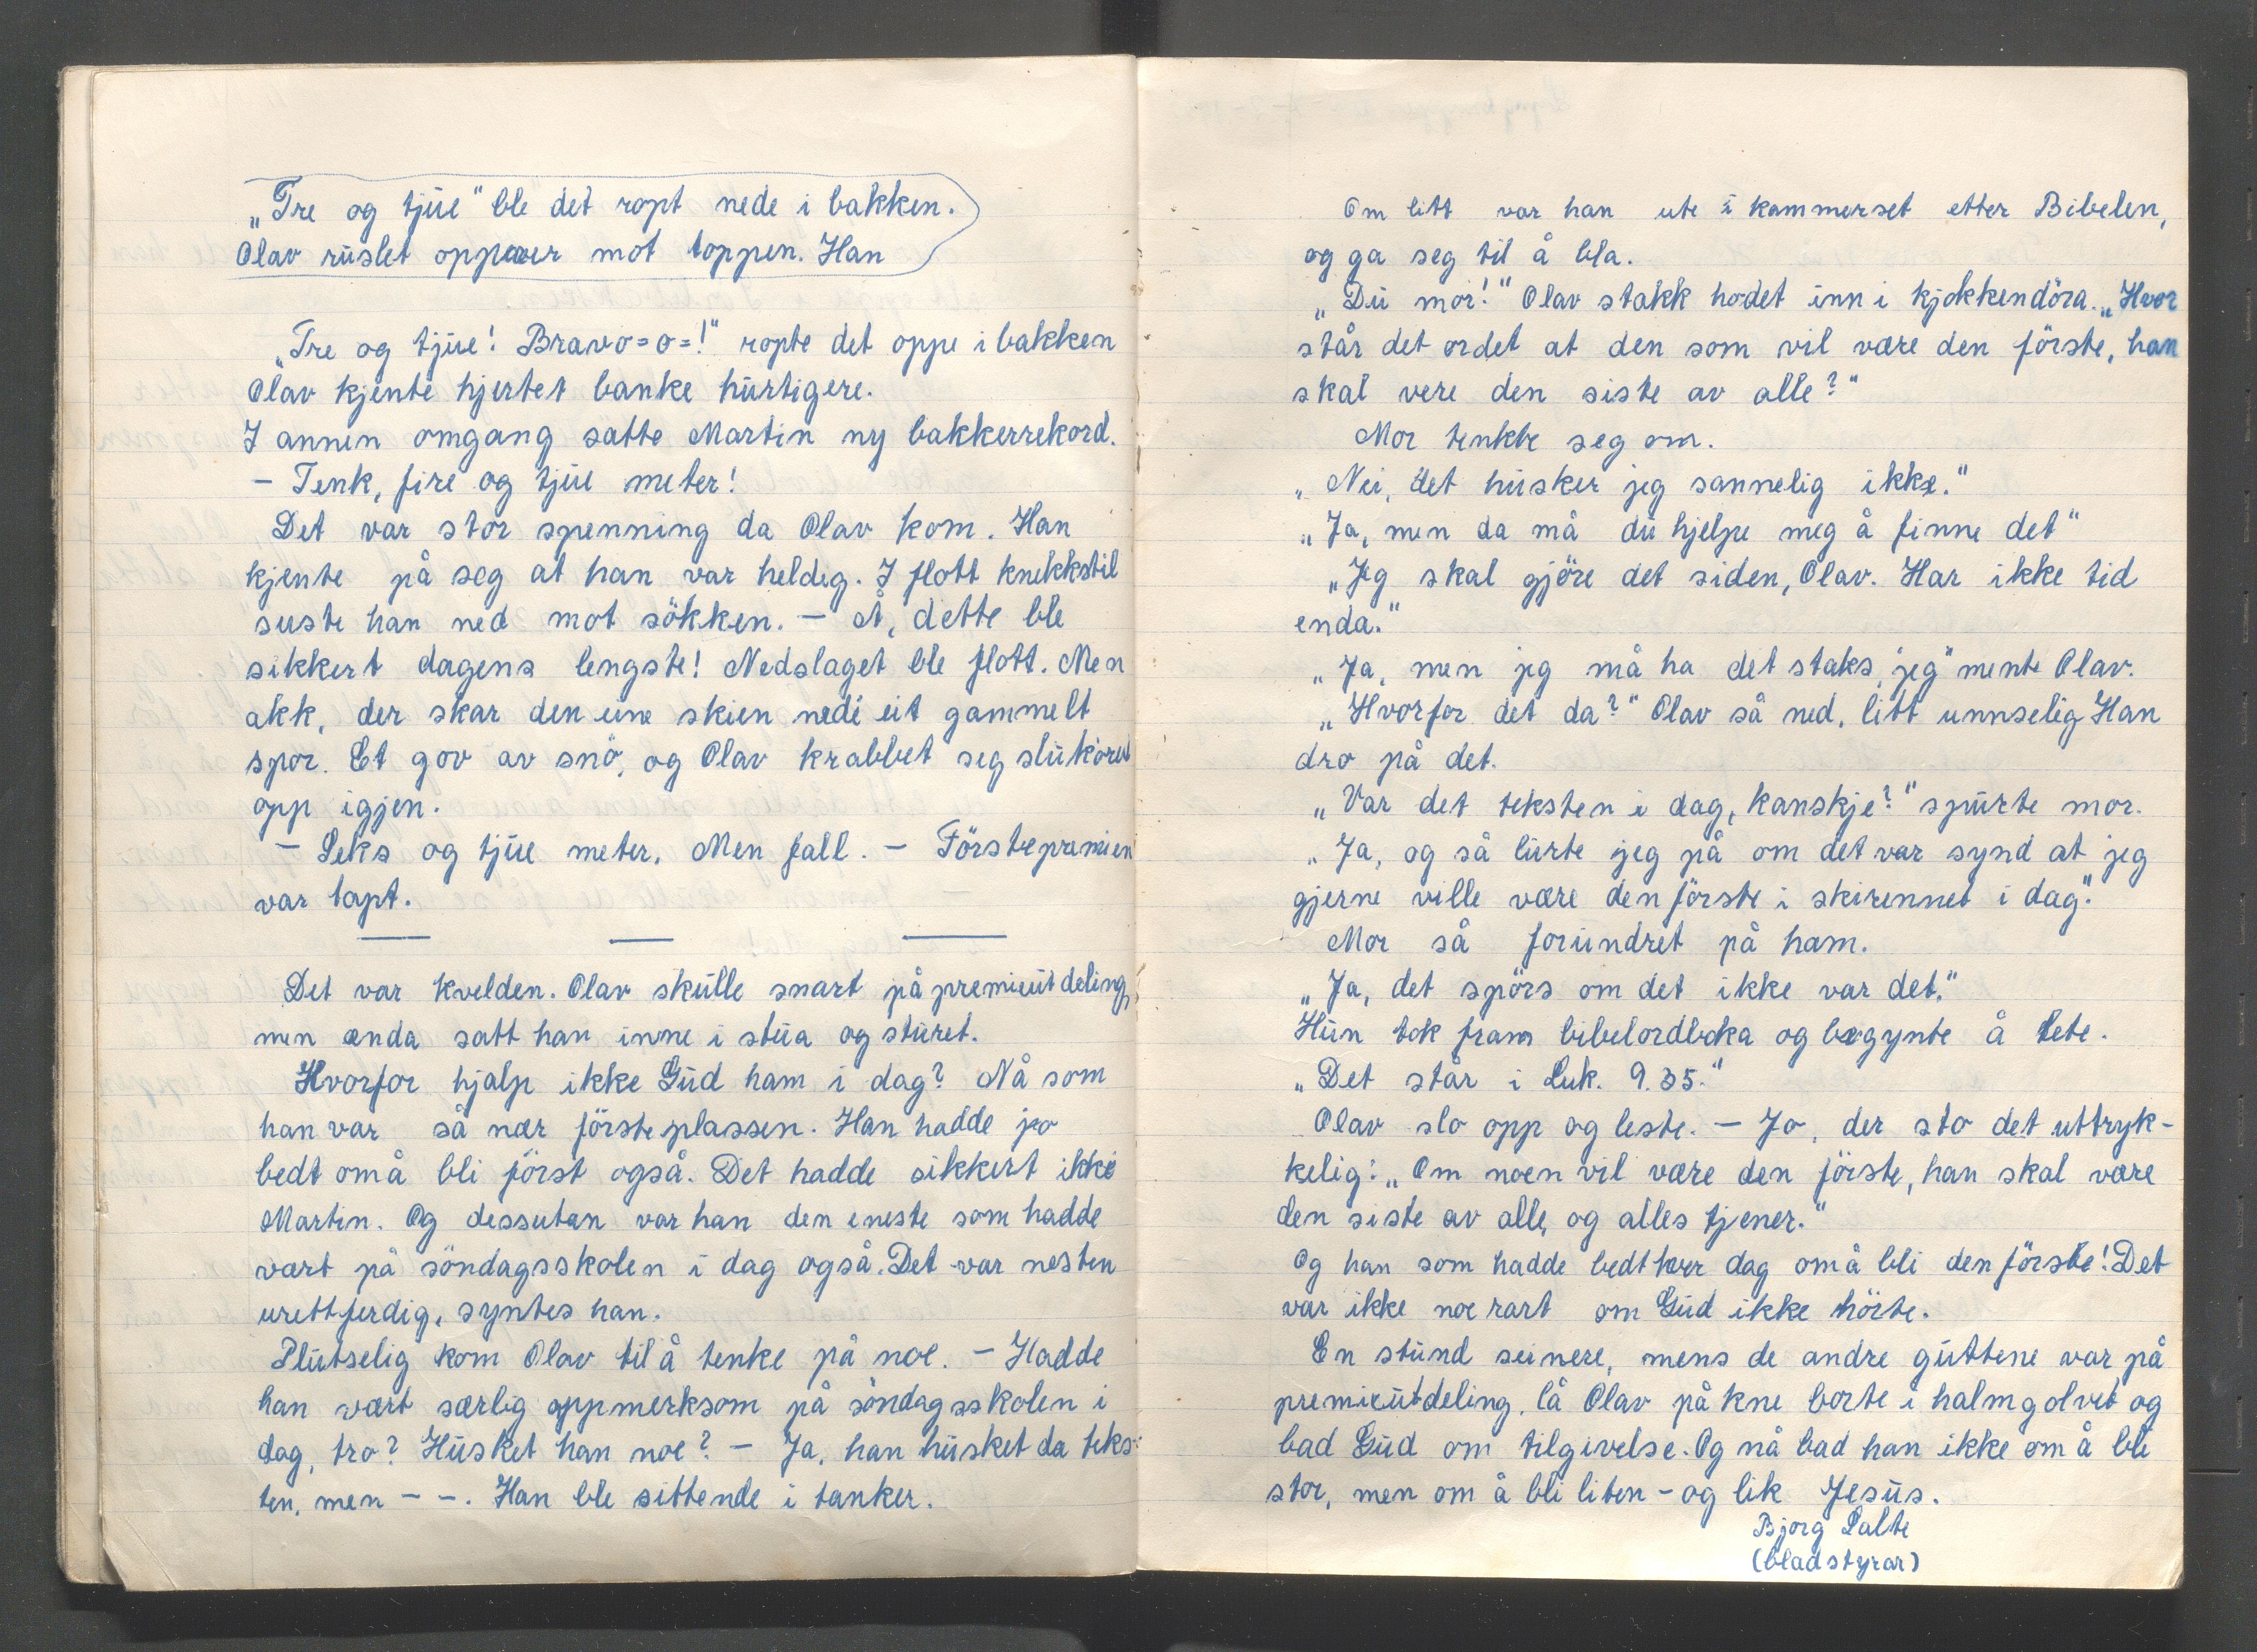 „Tre og tjue" ble det ropt nede i bakken.
Olav ruslet oppover mot toppen. Han
„Tre og tjue! Bravo=o=!" ropte det oppe i bakken
Olav kjente hjertet banke hurtigere.
I annen omgang satte Martin ny bakkerrekord.
– Tenk, fire og tjue meter!
Det var stor spenning da Olav kom. Han
kjente på seg at han var heldig. I flott knekkstil
suste han ned mot sökken. – Å, dette ble
sikkert dagens lengste! Nedslaget ble flott. Men
akk, der skar den eine skien nedi eit gammelt
spor. Et gov av snö, og Olav krabbet seg sluköret
opp igjen.
– Seks og tjue meter. Men fall. – Förstepremien
var tapt.
Det var kvelden. Olav skulle snart på premieutdeling,
men enda satt han inne i stua og sturet.
Hvorfor hjalp ikke Gud ham i dag? Nå som
han var så nær försteplassen. Han hadde jo
bedt om å bli först også. Det hadde sikkert ikke
Martin. Og dessutan var han den eneste som hadde
vært på söndagsskolen i dag også. Det var nesten
urettferdig, syntes han.
Plutselig kom Olav til å tenke på noe. – Hadde
han vært særlig oppmerksom på söndagsskolen i
dag, tro? Husket han noe? – Ja, han husket da teks-
ten, men – –. Han ble sittende i tanker.
Om litt var han ute i kammerset etter Bibelen,
og ga seg til å bla.
„Du mor!" Olav stakk hodet inn i kjökkendöra. „Hvor
står det ordet at den som vil være den förste, han
skal vere den siste av alle?"
Mor tenkte seg om.
„Nei, det husker jeg sannelig ikke."
„Ja, men da må du hjelpe meg å finne det"
„Jeg skal gjöre det siden, Olav. Har ikke tid
enda."
„Ja, men jeg må ha det staks, jeg" mente Olav.
„Hvorfor det da?" Olav så ned, litt unnselig Han
dro på det.
„Var det teksten i dag, kanskje?" spurte mor.
„Ja, og så lurte jeg på om det var synd at jeg
gjerne ville være den förste i skirennet i dag."
Mor så forundret på ham.
„Ja, det spörs om det ikke var det."
Hun tok fram bibelordboka og begynte å lete.
„Det står i Luk. 9.35."
Olav slo opp og leste. – Jo, der sto det uttryk-
kelig: „Om noen vil være den förste, han skal være
den siste av alle, og alles tjener."
Og han som hadde bedt hver dag om å bli den förste! Det
var ikke noe rart om Gud ikke hörte.
En stund seinere, mens de andre guttene var på
premieutdeling, lå Olav på kne borte i halmgolvet og
bad Gud om tilgivelse. Og nå bad han ikke om å bli
stor, men om å bli liten – og lik Jesus.
Bjorg Salte
(bladstyrar)